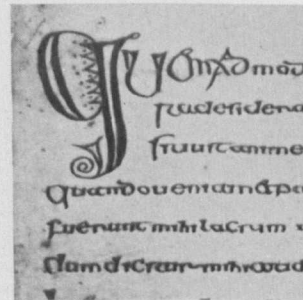 Quemadmod
ita desidera
sitiuit anime
quando ueniam & pa
fuerunt mihi lacrum
dum dicitur mihi